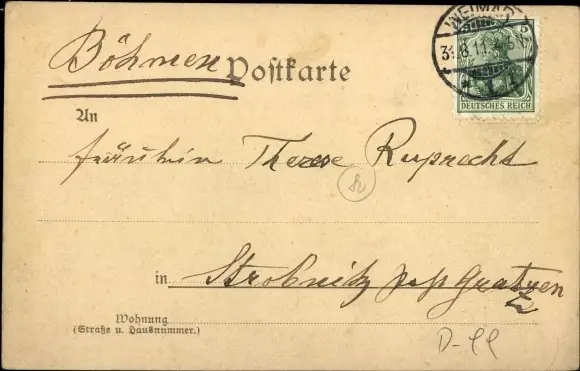 WEIMAR
5
31.8.11.
1
DEUTSCHES REICH
Böhmen Postkarte
An
Fräulein Therese Ruprecht
in Strobnitz post Gratzen
Wohnung
(Straße u. Hausnummer.)
D-99